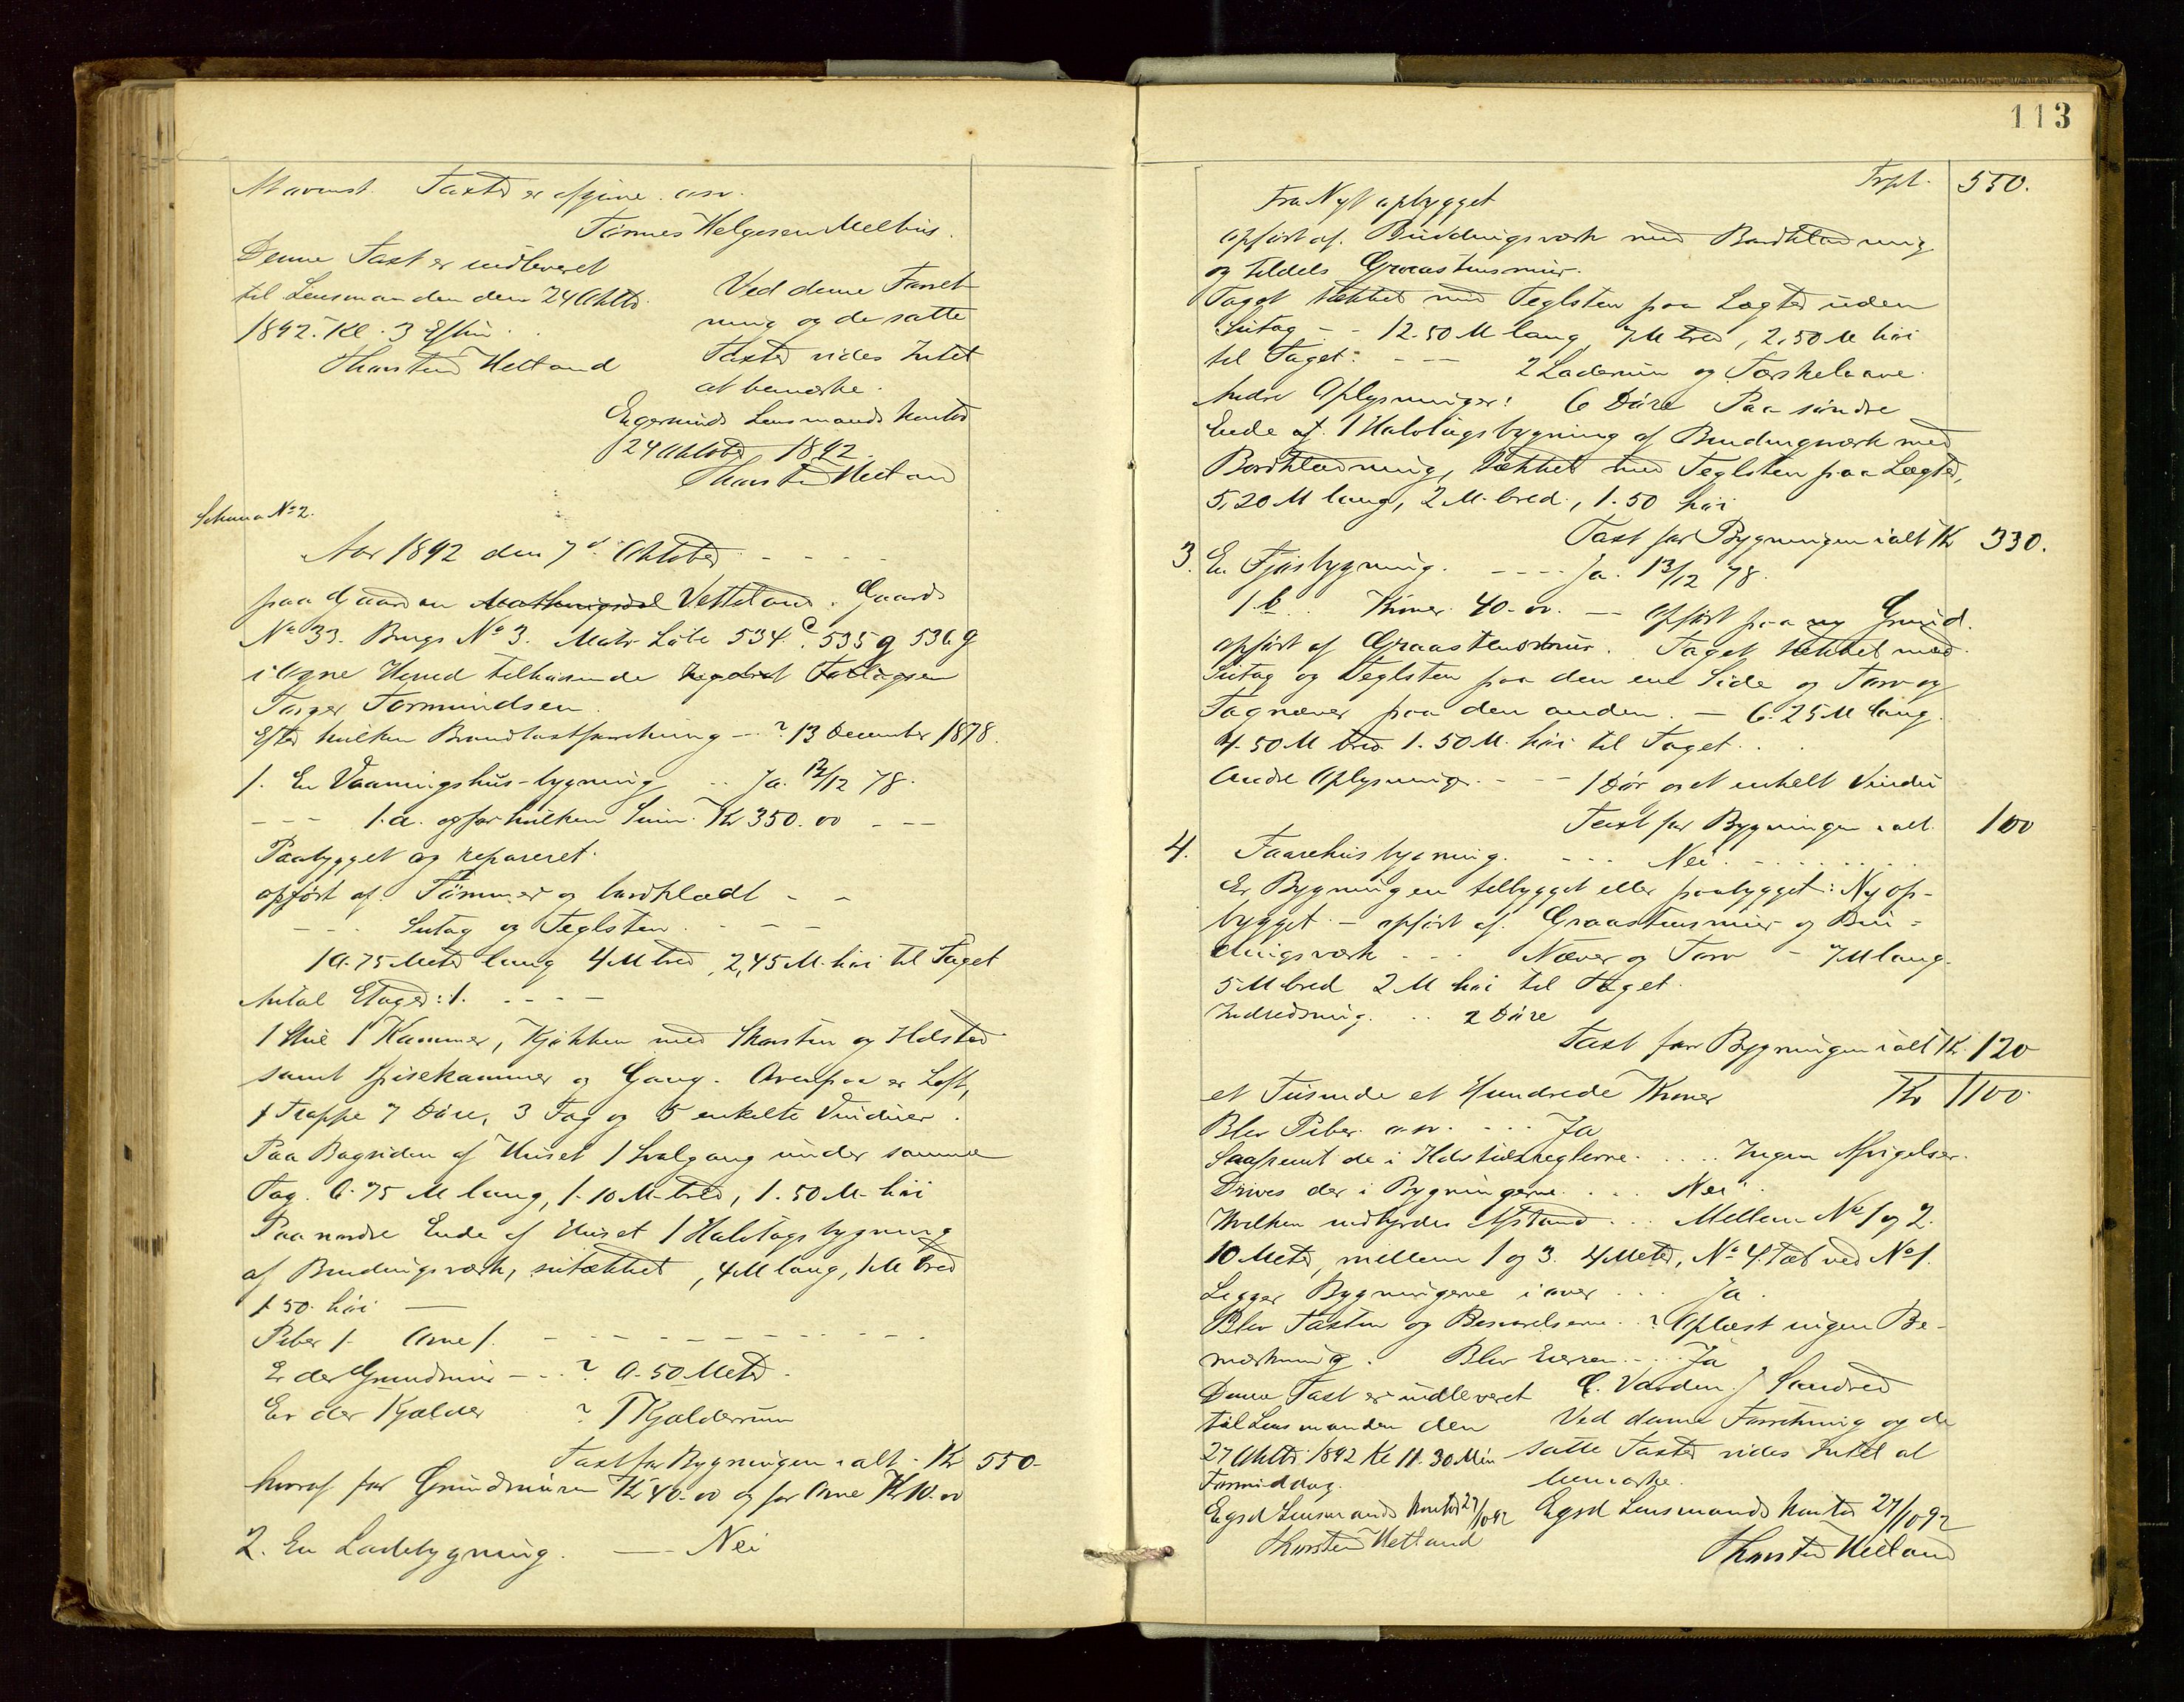 Taxter er afgivne. osv.
Tønnes Helgesen Melhus.
Denne Taxt er indleveret
til Lensmanden den 24 Oktbr.
1892. Kl. 3 Efterm.
Thorsten Hetland
Ved denne Forret-
ning og de satte
Taxter vides Intet
at bemærke.
Egersunds Lensmands Kontor
24 Oktober 1892.
Thorsten Hetland
Schema No 2.
Aar 1892 den 7de Oktober - - - -
paa Gaarden Vetteland. Gaards
No 33. Brugs No 3. Matr. Løbe 534 c. 535 g 536 g
i Ogne Herred tilhørende
Torger Tormundsen.
Efter hvilken Brandtaxtforretning - ? 13 December 1878.
1. En Vaaningshus-bygning - - Ja. 13/12 78.
- - - 1. a. og for hvilken Sum. Kr 350.00 - - -
Paabygget og repareret.
opført af Tømmer og bordklædt - -
- - - Sutag og Teglsten. - - -
10.75 Meter lang 4 M bred, 2,45 M. høi til Taget
Antal Etager: 1. - - - -
1 Stue 1 Kammer, Kjøkken med Skorsten og Ildsted
samt Spisekammer og Gang. Ovenpaa er Loft,
1 Trappe 7 Døre, 3 Fag og 5 enkelte Vinduer.
Paa Bagsiden af Huset 1 Svalgang under samme
Tag. 6.75 M lang, 1.10 M. bred, 1.50 M. høi
Paa nordre Ende af Huset 1 Halvtagsbygning
af Bindingsværk, sutækket, 4 M lang, 1 M bred
1 50. høi —
Piber 1. Ovne 1. - - - - - - - - - -
Er der Grundmur - - - ? 0.50 Meter.
Er der Kjælder ? 1 Kjælderrum
Taxt for Bygningen i alt. Kr 550-
hvoraf for Grundmuren Kr 40.00 og for Ovne Kr 10.00
2. En Ladebygning. — Nei
113
Trpt. 550.
Fra Nyt opbygget
opført af Bindingsværk med Bordklædning
og tildels Graastensmur.
Taget tækket med Teglsten paa Lægter uden
Sutag - - 12.50 M lang, 7 M bred, 2,50 M høi
til Taget: - - - 2 Laderum og Tærskelaave.
Andre Oplysninger: 6 Døre Paa søndre
Ende af 1 Halvtagsbygning af Bindingsværk med
Bordklædning, tækket med Teglsten paa Lægter,
5,20 M lang, 2 M. bred, 1.50 høi
Taxt for Bygningen i alt Kr 330.
3. En Fjøsbygning. - - - - Ja. 13/12 78.
1. b. Kroner 40.00. — Opført paa ny Grund.
opført af Graastensmur. Taget tækket med
Sutag og Teglsten paa den ene Side og Torv og
Tagnæver paa den anden. — 6.25 M lang
4.50 M bred 1.50 M. høi til Taget. . .
Andre Oplysninger - - - 1 Dør og et enkelt Vindu
Taxt for Bygningen i alt. 100
4. Faarehusbygning. - - - Nei. - - - - - -
Er Bygningen tilbygget eller paabygget: Ny op-
bygget - opført af Graastensmur og Bin-
dingsværk - - - Næver og Torv - 7 M lang.
5 M bred 2 M høi til Taget.
Indredning. - - 2 Døre
Taxt for Bygningen i alt Kr. 120
et Tusinde et Hundrede Kroner Kr 1100.
Blev Piber osv. - - - Ja
Saafremt de i Ildstedsreglerne. . . . . Ingen Afvigelser.
Drives der i Bygningerne. . . . Nei.
Hvilken indbyrdes Afstand. . . Mellem No 1 og 2.
10 Meter, mellem 1 og 3. 4 Meter, No 4 tæt ved No 1.
Ligger Bygningerne i over . . . Ja.
Blev Taxten og Besvarelserne. . ? Oplæst ingen Be-
mærkning. Blev Eieren - - - Ja
Denne Taxt er indleveret
til Lensmanden den
27 Oktbr. 1892 Kl 11.30 Min
Formiddag.
Egsd Lensmands Kontor 27/10 92
Thorsten Hetland
Ved denne Forretning og de
satte Taxter vides Intet at
bemærke.
Egsd Lensmands Kontor 27/10 92
Thorsten Hetland